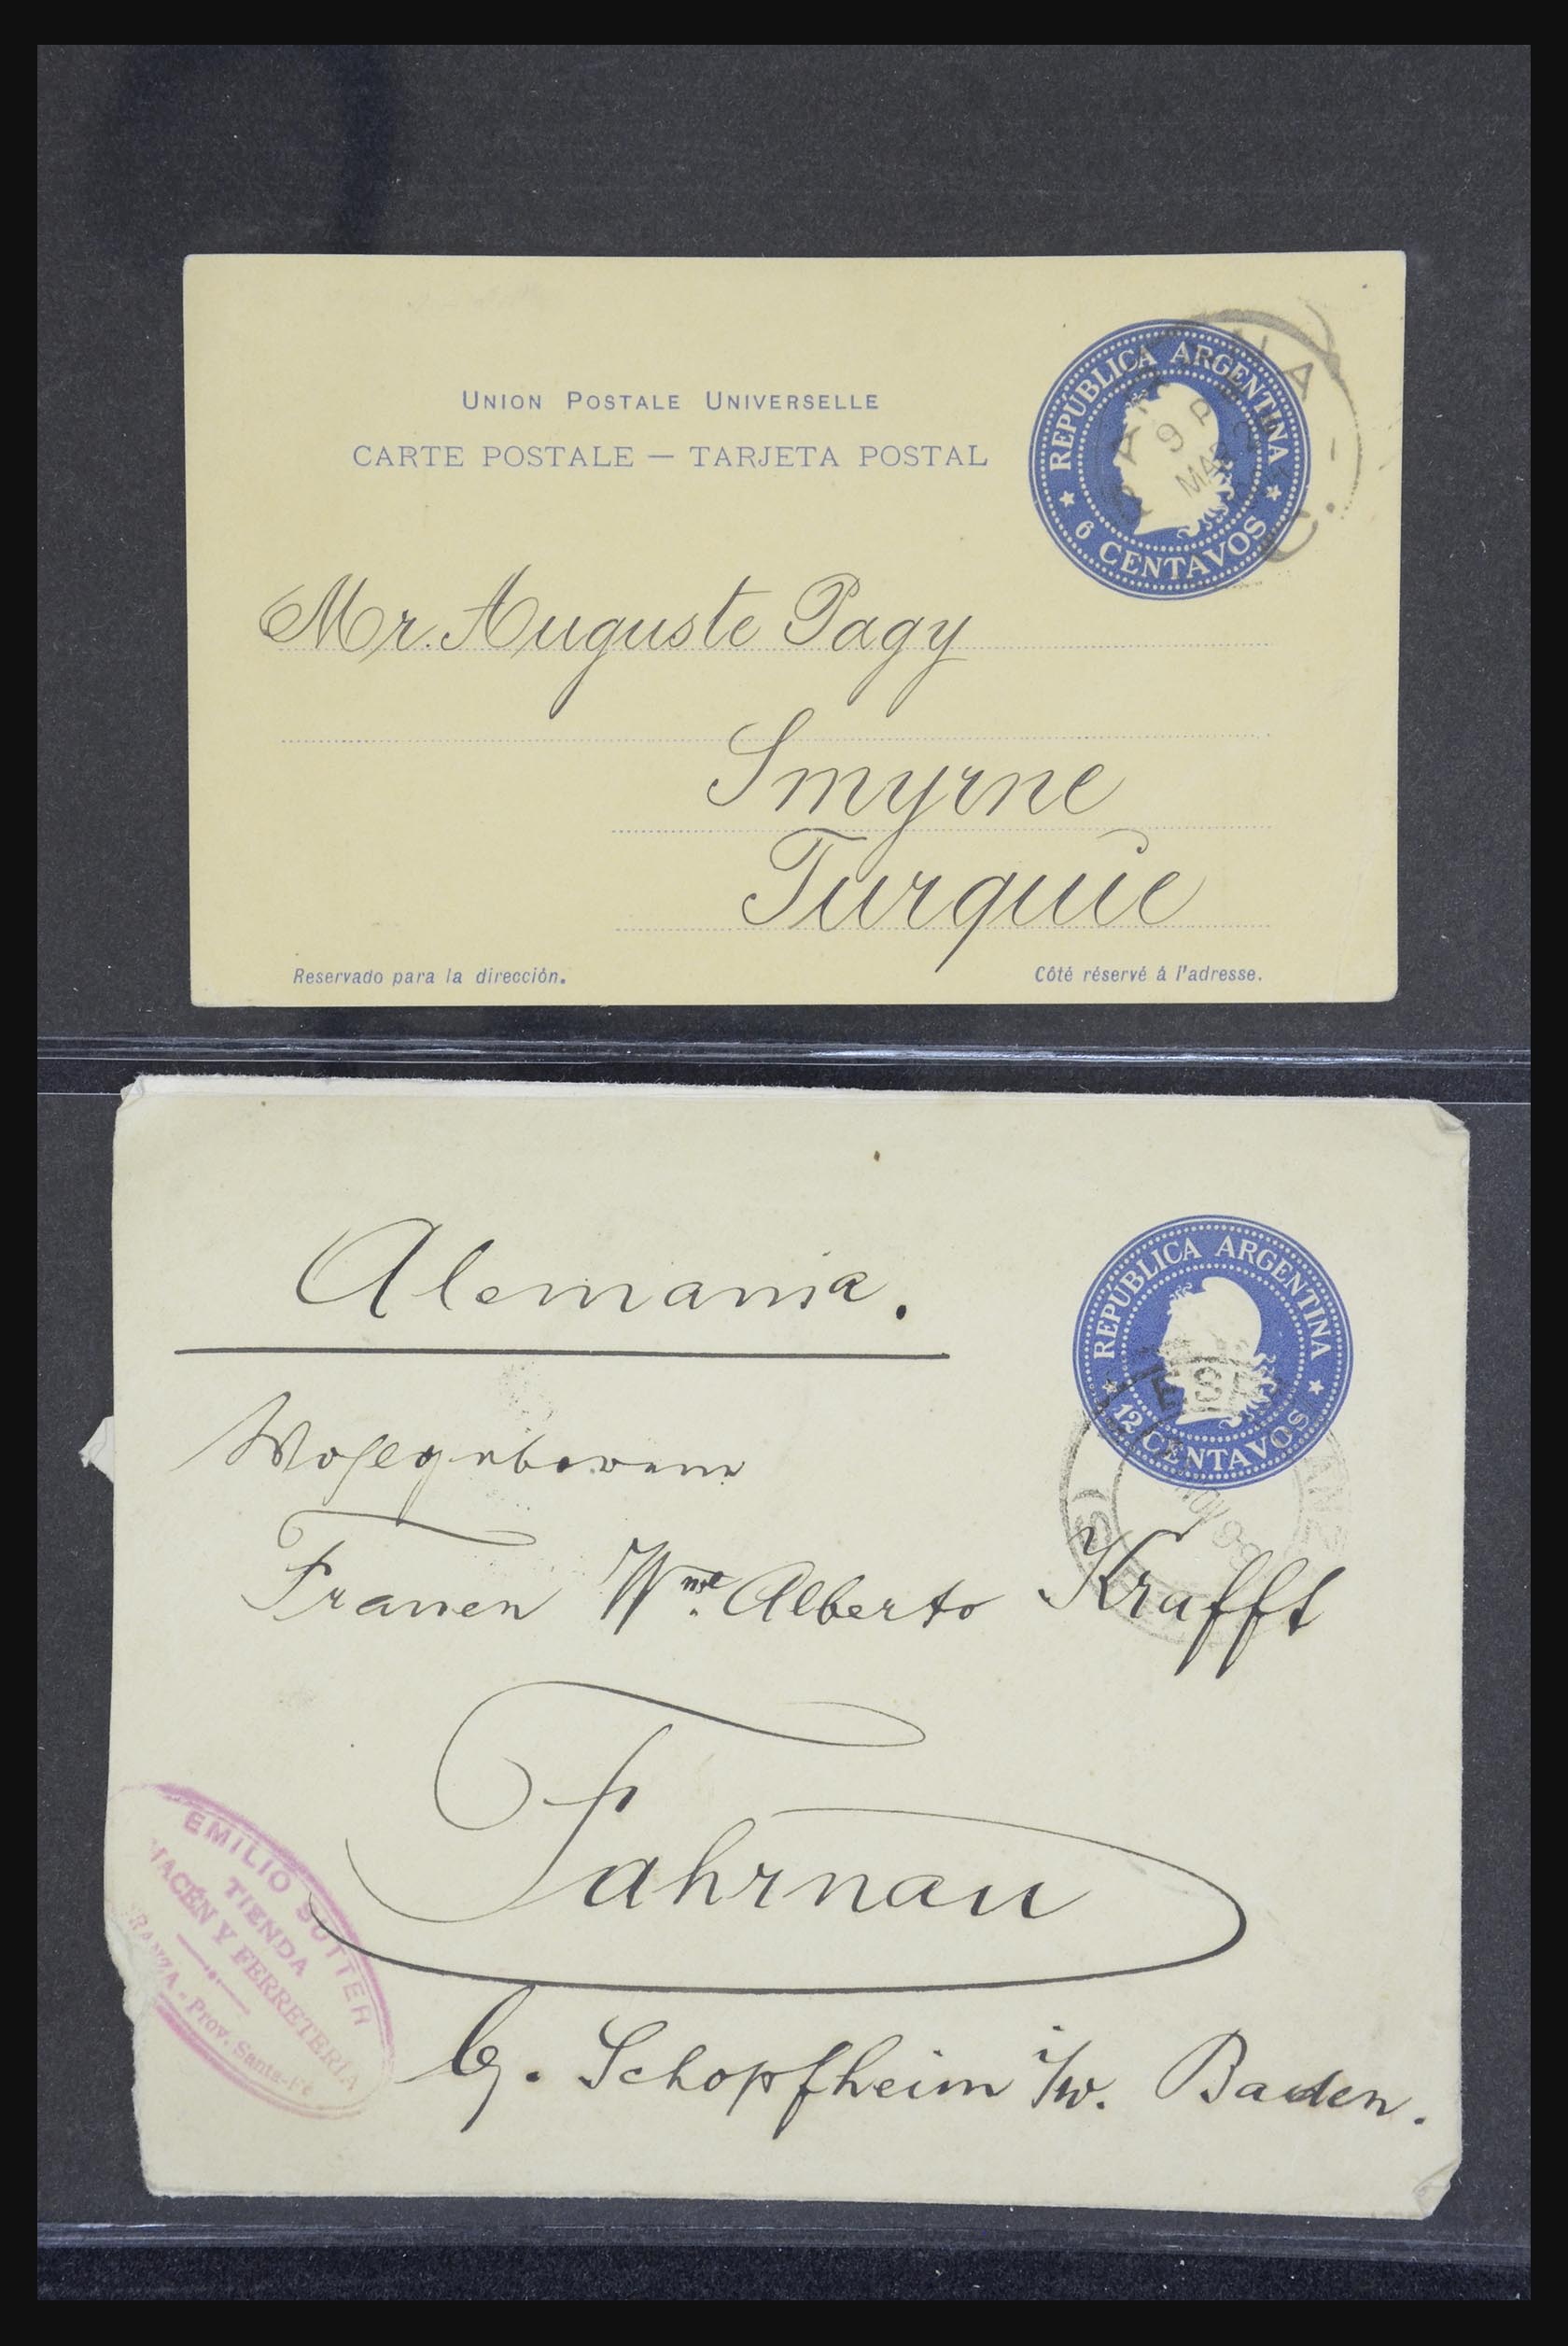 UNION POSTALE UNIVERSELLE
CARTE POSTALE — TARJETA POSTAL
REPUBLICA ARGENTINA
6 CENTAVOS
9 P
MAR 2
Mr. Auguste Pagy
Smyrne
Turquie
Reservado para la dirección.
Côté réservé á l'adresse.
Alemania.
REPUBLICA ARGENTINA
12 CENTAVOS
EST
NOV 99
Wohlgeborenen
Frauen Wwe. Alberto Krafft
Fahrnau
EMILIO SUTTER
TIENDA
MACÉN Y FERRETERÍA
RANZA - Prov. Santa-Fé
b/. Schopfheim i/W. Baden.